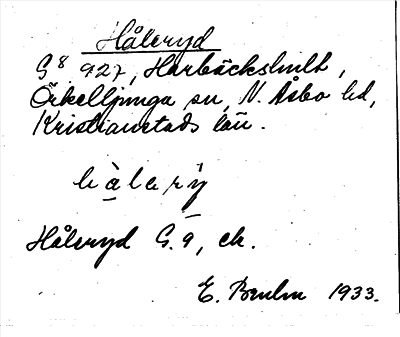 Håleryd
G⁸ 927, Harbäckshult,
Örkelljunga sn, N. Åsbo hd,
Kristianstads län.
hàlerỳ
Håleryd G.a, ek.
E. Bruhn 1933.